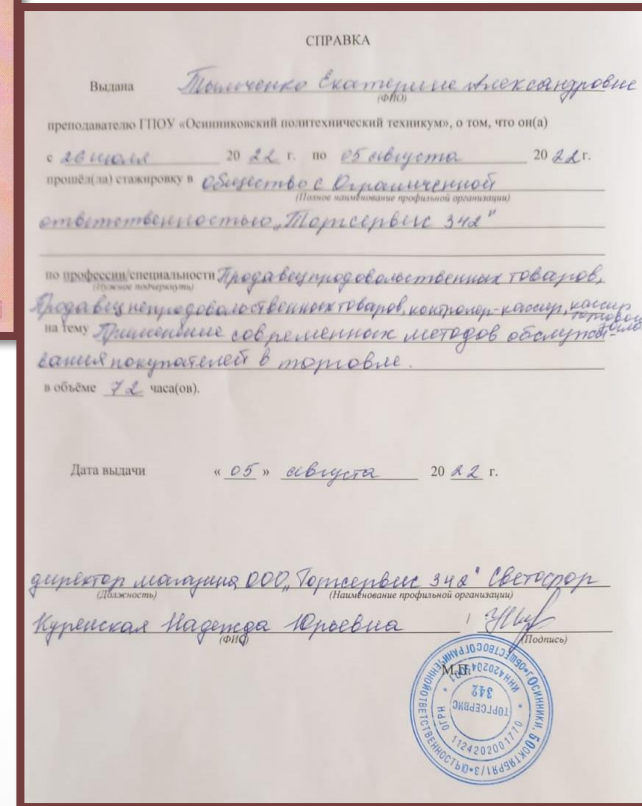 СПРАВКА
Выдана Тымченко Екатерине Александровне
(ФИО)
преподавателю ГПОУ «Осинниковский политехнический техникум», о том, что он(а)
с 26 июля 20 22 г. по 05 августа 20 22 г.
прошёл(ла) стажировку в Общество с Ограниченной
(Полное наименование профильной организации)
ответственностью „Торгсервис 342"
по профессии/специальности Продавец продовольственных товаров,
(Нужное подчеркнуть)
Продавец непродовольственных товаров, контролер-кассир, кассир
торговой
на тему Применение современных методов обслужи-
вания покупателей в торговле.
в объёме 72 часа(ов).
Дата выдачи « 05 » августа 20 22 г.
директор магазина ООО „Торгсервис 342" Светофор
(Должность) (Наименование профильной организации)
Куренская Надежда Юрьевна /
(ФИО) (Подпись)
М.П.
ТОРГСЕРВИС
342
ОГРН 1124202001770